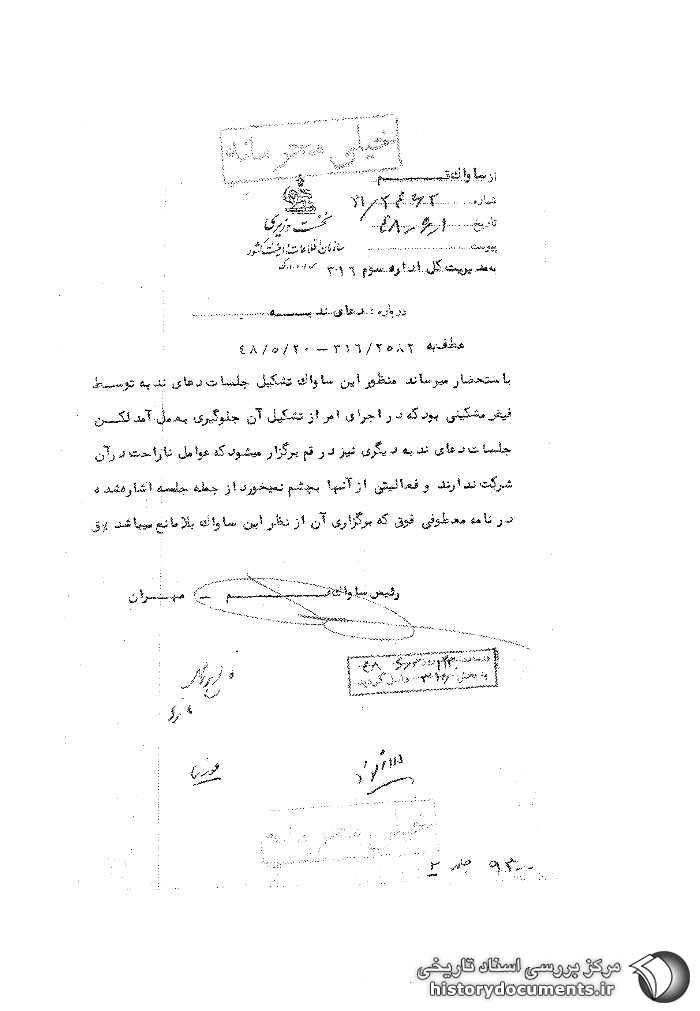 خیلی محرمانه
از ساواك قـــــم
شماره ۲۱/۲۶۶۲
تاریخ ۴۸/۶/۱
پیوست
نخست وزیری
سازمان اطلاعات و امنیت کشور
س.ا.و.ا.ک
به مدیریت کل اداره سوم ۳۱۶
درباره : دعای ندبـــه
عطف به ۳۱۶/۲۵۸۲ – ۴۸/۵/۲۰
باستحضار میرساند منظور این ساواك تشکیل جلسات دعای ندبه توسط
فیض مشکینی بود که در اجرای امر از تشکیل آن جلوگیری بعمل آمد لکـن
جلسات دعای ندبه دیگری نیز در قم برگزار میشود که عوامل ناراحت در آن
شرکت ندارند و فعالیتی از آنها بچشم نمیخورد از جمله جلسه اشاره شده
در نامه معطوفی فوق که برگزاری آن از نظر این ساواك بلامانع میباشد
رئیس ساواك قـــــم ــ مهـــران
به بخش ۳۱۶ واصل گردید
خیلی محرمانه
مرکز بررسی اسناد تاریخی
historydocuments.ir